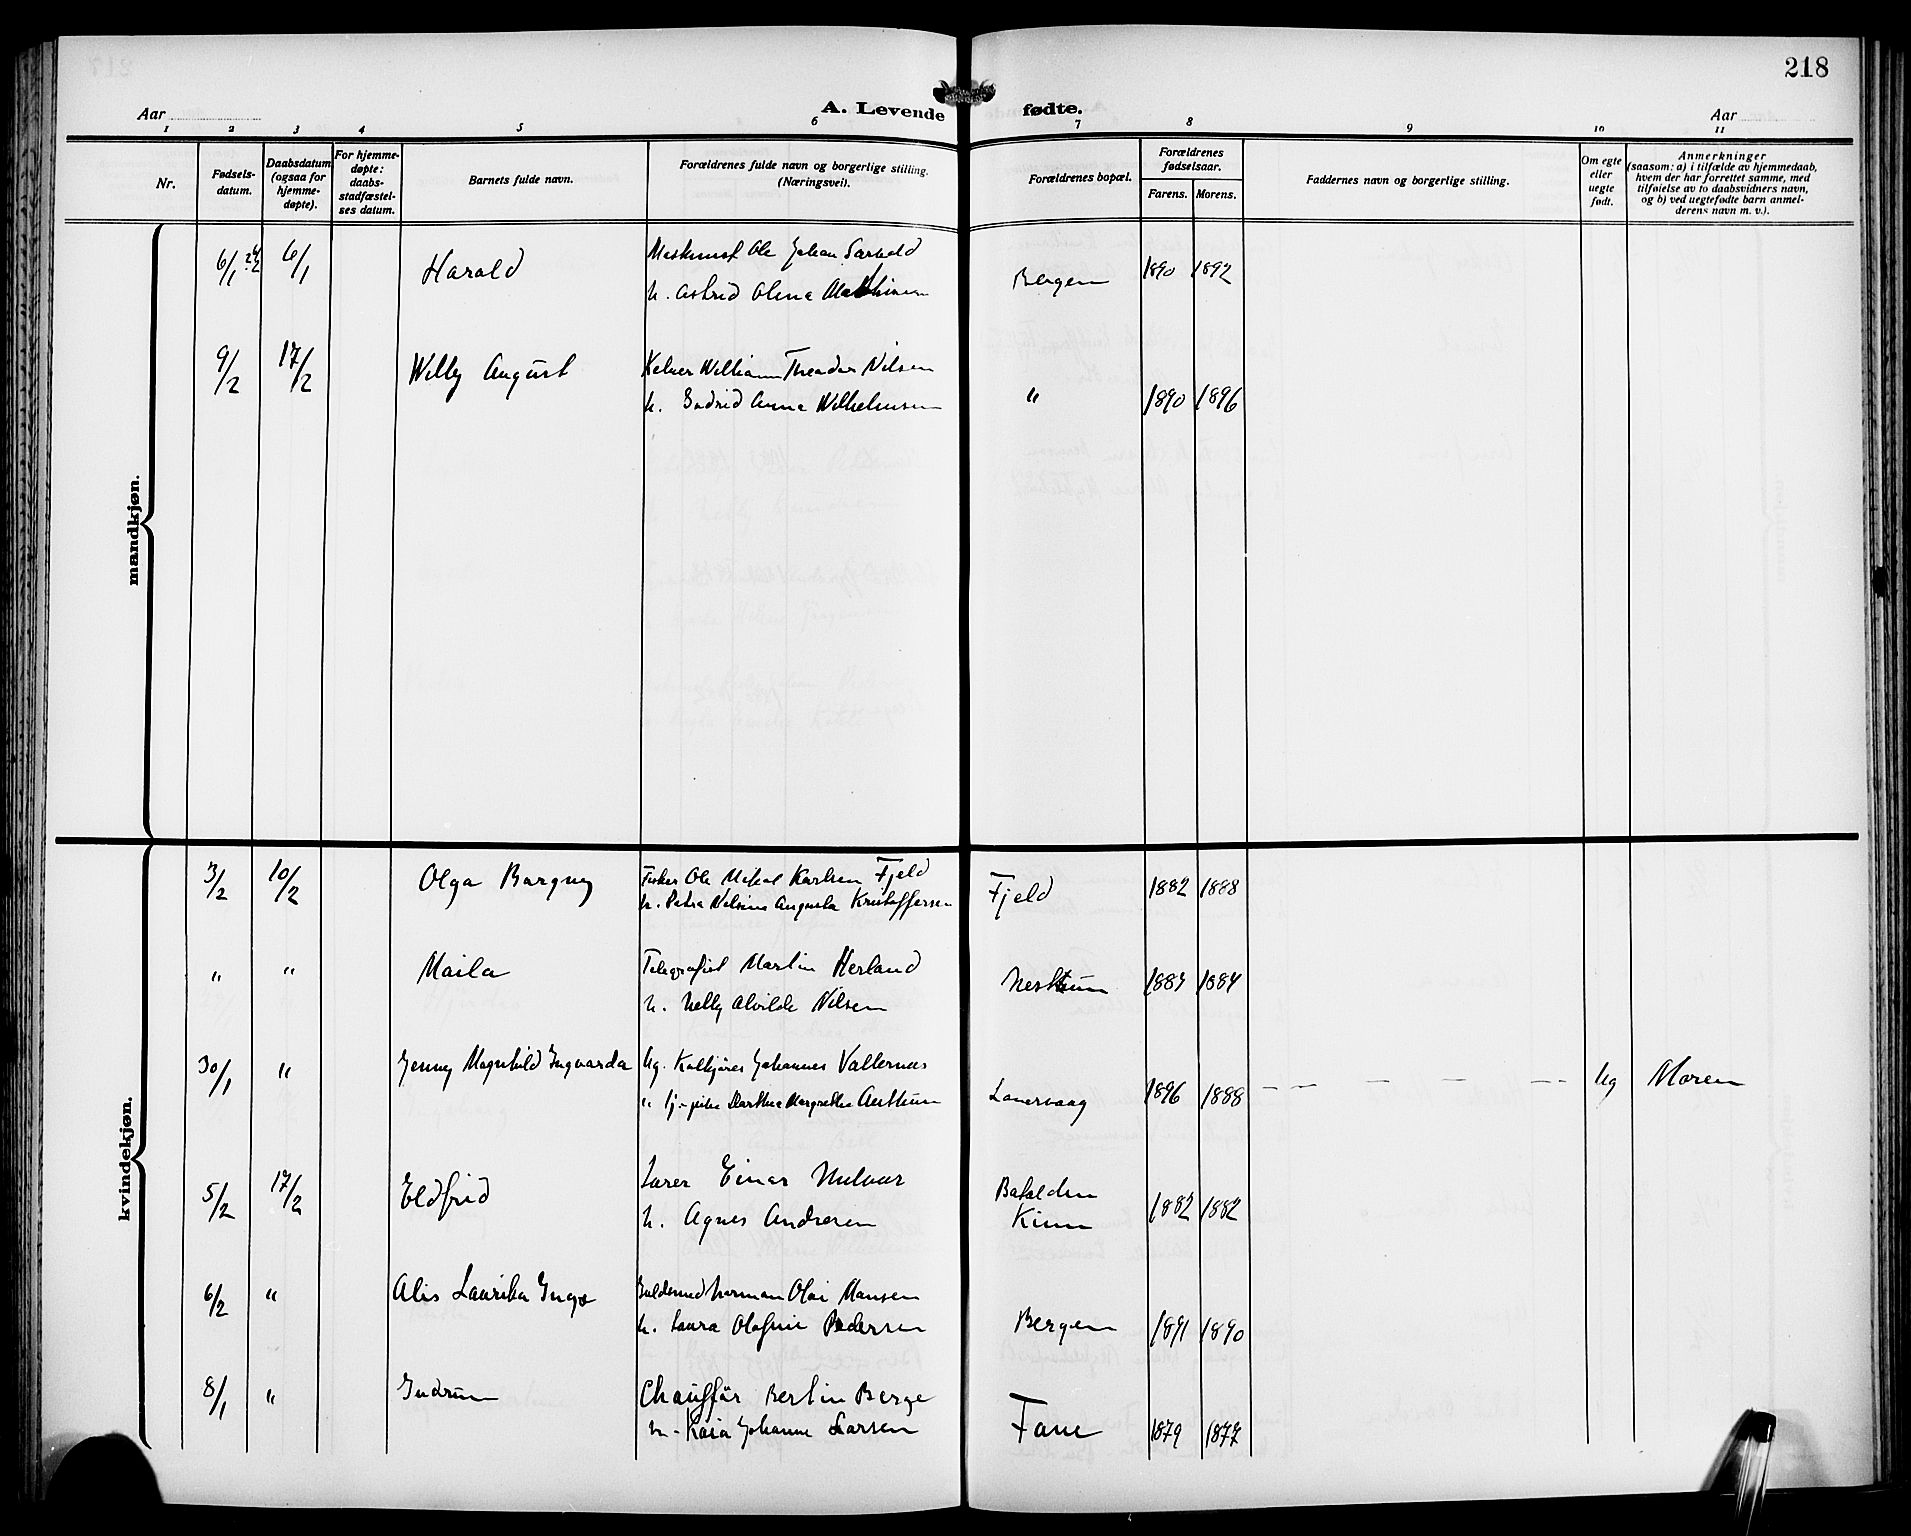 218
A. Levende fødte.
Aar
Aar
1 2 3 4 5 6 7 8 9 10 11
Nr.
Fødsels-
datum.
Daabsdatum
(ogsaa for
hjemme-
døpte).
For hjemme-
døpte:
daabs-
stadfæstel-
ses datum.
Barnets fulde navn.
Forældrenes fulde navn og borgerlige stilling.
(Næringsvei).
Forældrenes bopæl.
Forældrenes
fødselsaar.
Farens. Morens.
Faddernes navn og borgerlige stilling.
Om egte
eller
uegte
født.
Anmerkninger
(saasom: a) i tilfælde av hjemmedaab,
hvem der har forrettet samme, med
tilføielse av to daabsvidners navn,
og b) ved uegtefødte barn anmel-
derens navn m. v.).
mandkjøn.
6/1 6/1 Harald Ole Johan
Bergen 1890 1892
h. Astrid Olena
9/2 17/2 Willy August Kelner William Theodor Nilsen
h. Gudrid Anna Wilhelmsen " 1890 1896
kvindekjøn.
3/2 10/2 Olga Bargny Fisker Ole Mikal Karlsen Fjeld
h. Petra Nilsine Augusta Kristoffersen Fjeld 1882 1888
" " Maila Telegrafist Martin Herland
h. Nelly Alvilde Nilsen Nesttun 1884 1884
30/1 " Jenny Magnhild Ingvarda Ug. Johannes Vallernes
" tj.-pike Dorthea Margrethe 1896 1888 Ug Moren
5/2 17/2 Eldfrid Lærer Einar
h. Agnes Andresen Batalden
Kinn 1882 1882
6/2 " Alis Laurika Inga Guldsmed Norman Olai Hansen
h. Laura Olafine Pedersen Bergen 1891 1890
8/1 " Gudrun Chauffør Bertin Berge
h. Kaia Johanne Larsen Fane 1879 1877